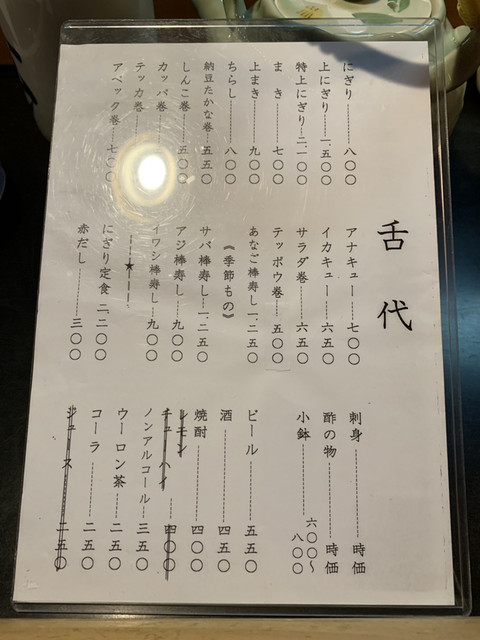 舌代
にぎり----------八〇〇
上にぎり------一、五〇〇
特上にぎり--二、一〇〇
まき----------七〇〇
上まき--------九〇〇
ちらし--------八〇〇
納豆たかな巻--五五〇
しんこ巻------五〇〇
カッパ巻
テッカ巻
アベック巻----七〇〇
アナキュー----七〇〇
イカキュー----六五〇
サラダ巻------六五〇
テッポウ巻----五〇〇
あなご棒寿し一、二五〇
《季節もの》
サバ棒寿し--一、二五〇
アジ棒寿し----九〇〇
イワシ棒寿し--九〇〇
----★----
にぎり定食 二、二〇〇
赤だし--------三〇〇
刺身----------時価
酢の物--------時価
小鉢----------六〇〇〜八〇〇
ビール--------五五〇
酒------------四五〇
焼酎----------四〇〇
レモンチューハイ----四〇〇
ノンアルコール--三五〇
ウーロン茶----二五〇
コーラ--------二五〇
ジュース------二五〇